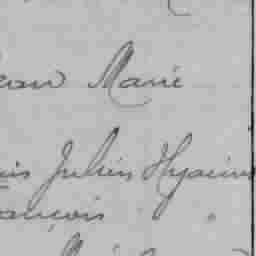 ean Marie
uis Julien Hyacin
ançois